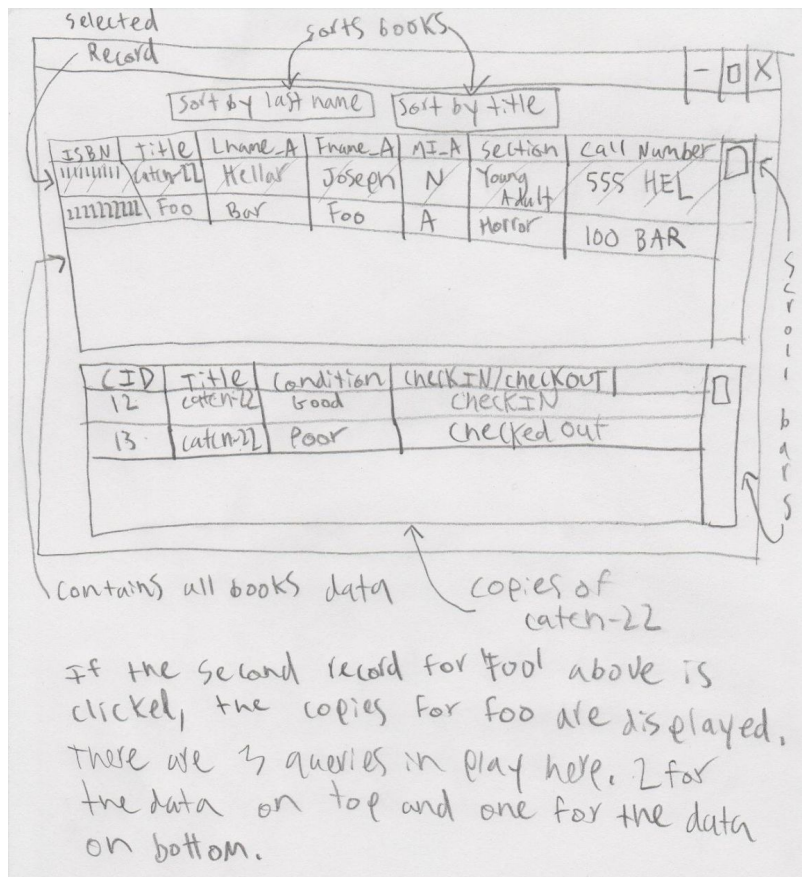 selected
Record
sorts books
- □ X
Sort by last name
Sort by title
ISBN Title Lname_A Fname_A MI_A Section Call Number
1111111111 catch-22 Hellar Joseph N Young Adult 555 HEL
2222222222 Foo Bar Foo A Horror 100 BAR
scroll bars
CID Title Condition CheckIN/checkOUT
12 catch-22 Good CheckIN
13 catch-22 Poor Checked out
contains all books data
copies of
catch-22
If the second record for 'Foo' above is
clicked, the copies for foo are displayed.
There are 3 queries in play here. 2 for
the data on top and one for the data
on bottom.